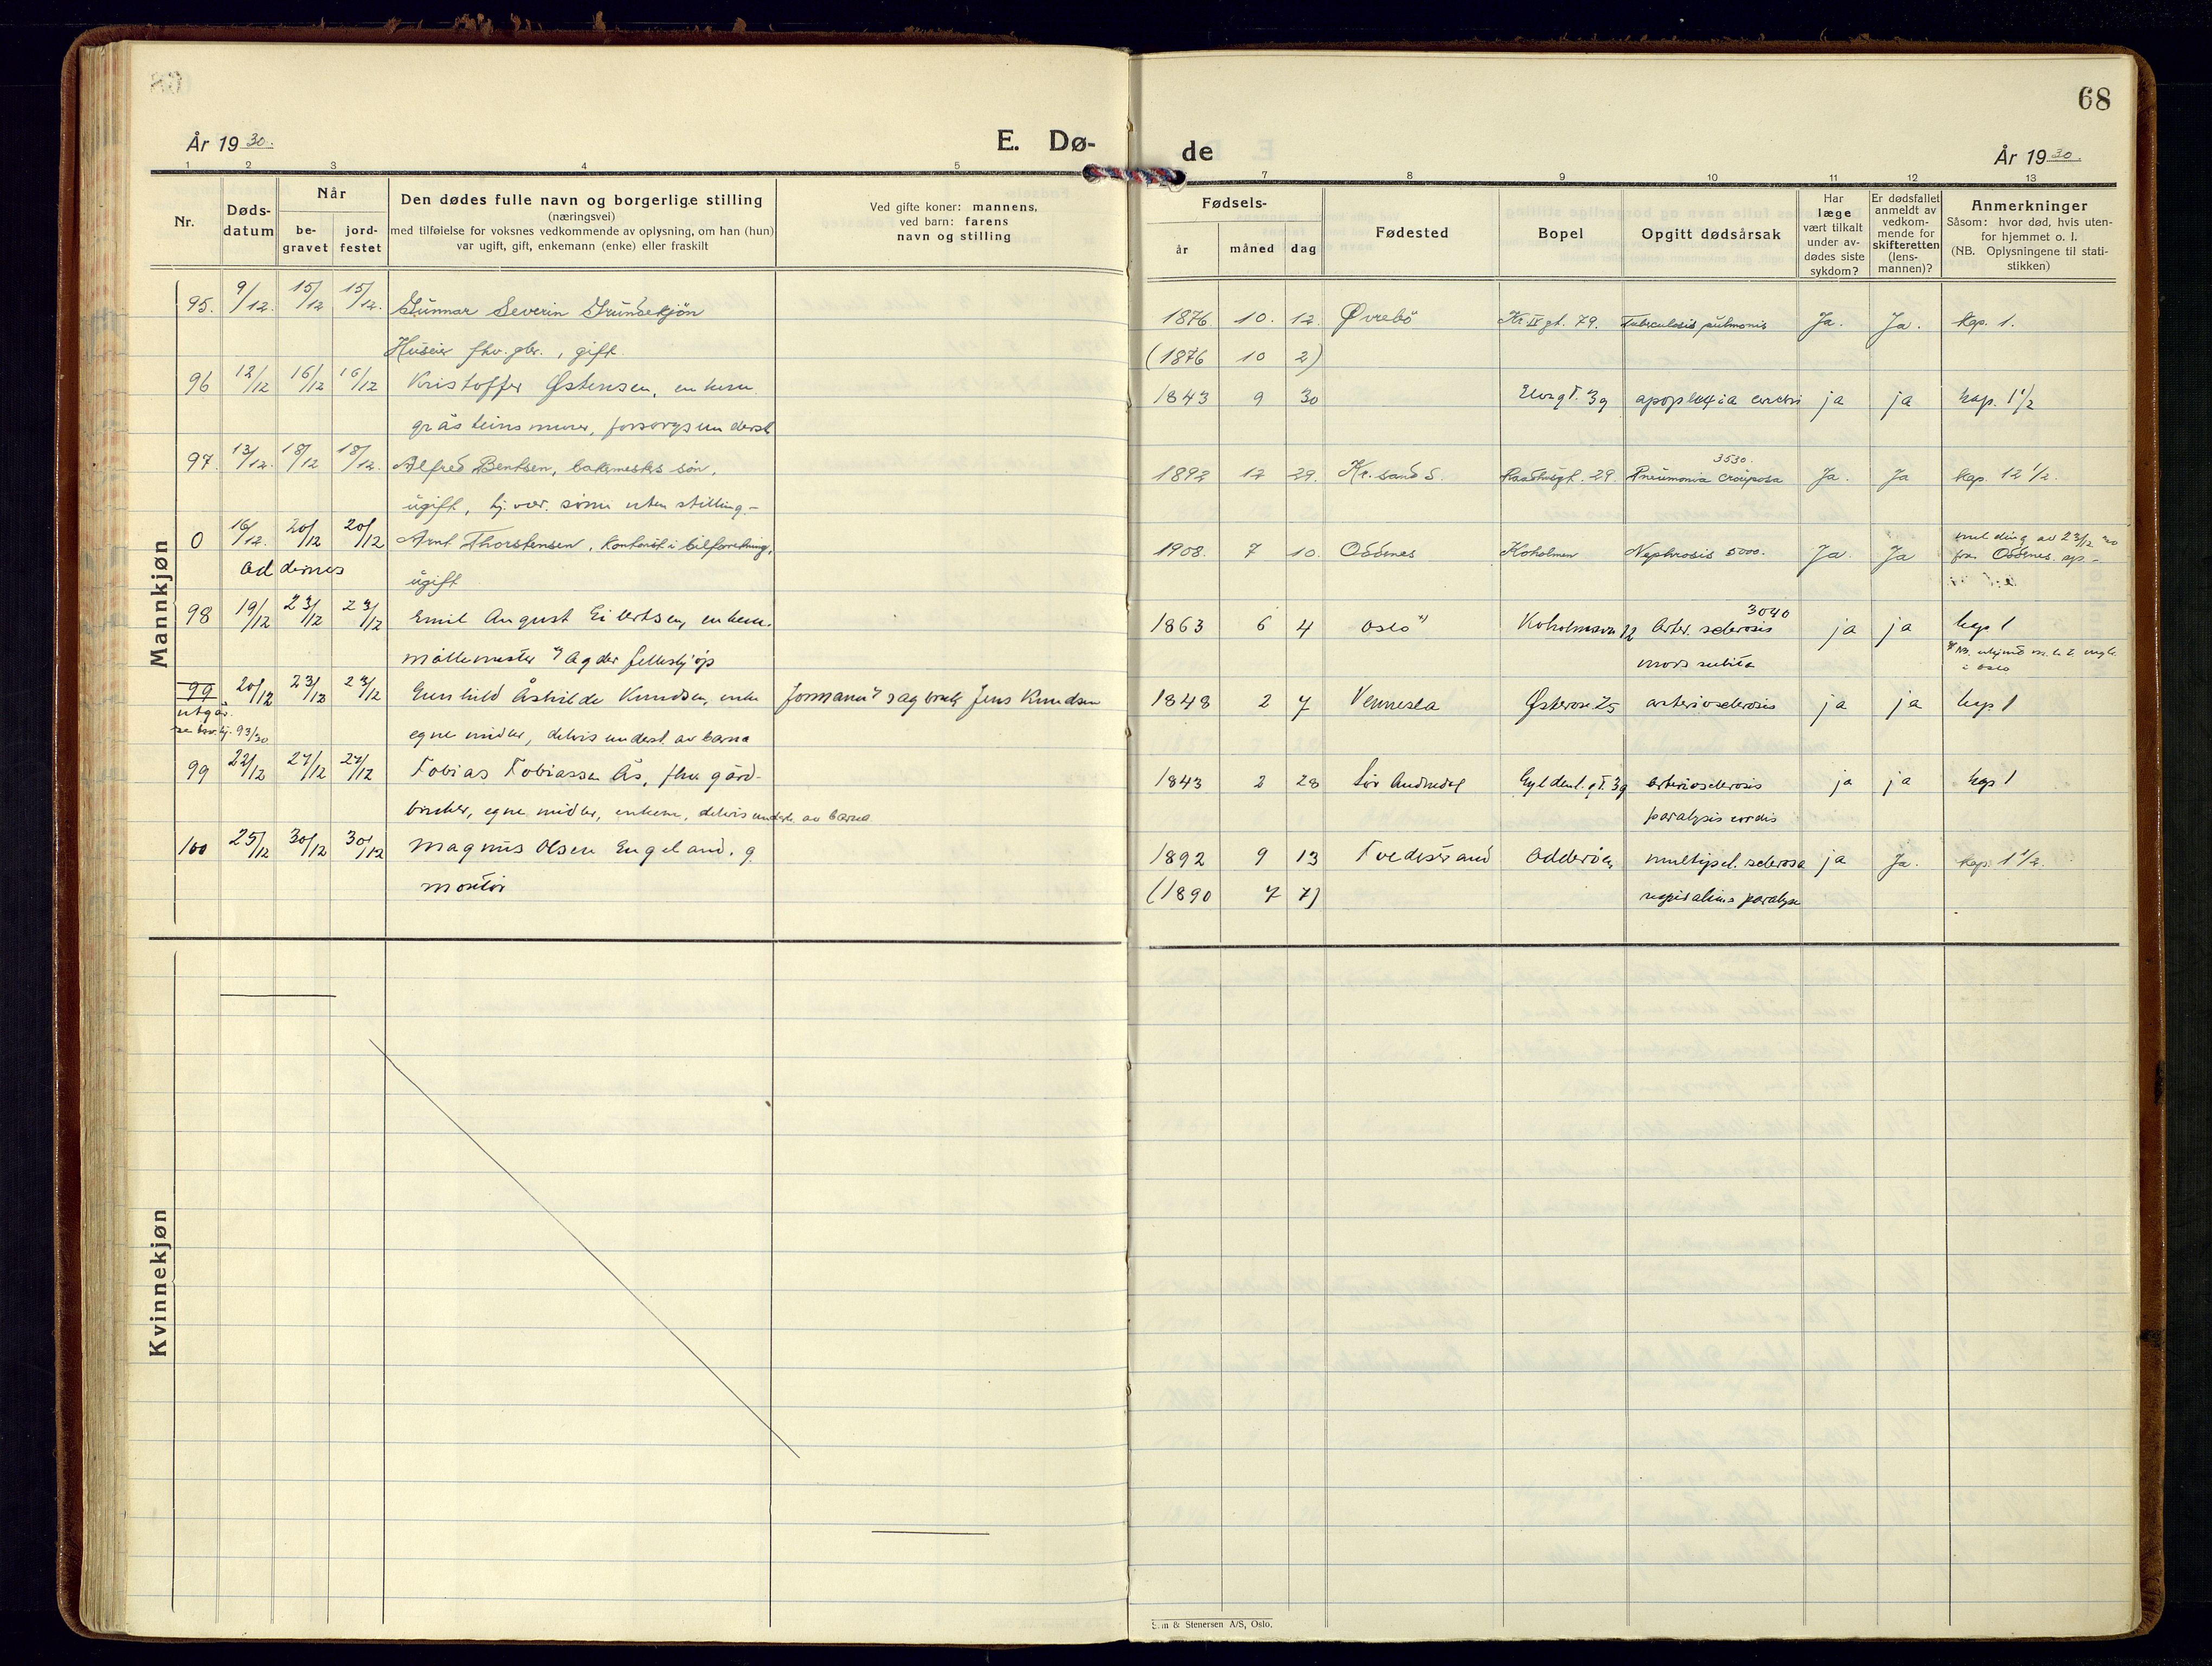 68
År 1930.
E. Dø-
de
År 1930.
1 2 3 4 5 7 8 9 10 11 12 13
Nr.
Døds-
datum
Når
be-
gravet
jord-
festet
Den dødes fulle navn og borgerlige stilling
(næringsvei)
med tilføielse for voksnes vedkommende av oplysning, om han (hun)
var ugift, gift, enkemann (enke) eller fraskilt
Ved gifte koner: mannens,
ved barn: farens
navn og stilling
Fødsels-
år måned dag
Fødested
Bopel
Opgitt dødsårsak
Har
læge
vært tilkalt
under av-
dødes siste
sykdom?
Er dødsfallet
anmeldt av
vedkom-
mende for
skifteretten
(lens-
mannen)?
Anmerkninger
Såsom: hvor død, hvis uten-
for hjemmet o. l.
(NB. Oplysningene til stati-
stikken)
Mannkjøn
95. 9/12. 15/12 15/12. Gunnar Severin Grundekjön 1876 10. 12. Øvrebö Kr. IV gt. 79. Tuberculosis pulmonis Ja. Ja. Kap. 1.
Huseier fhv. gbr., gift. (1876 10 2)
96 12/12 16/12 16/12 Kristoffer Østensen, enkem. 1843 9 30 Elvegt. 39 apoplexia cerebri ja ja kap. 1 1/2
gråsteinsmurer, forsorgsunderst.
97. 13/12. 18/12 18/12. Alfred Bentsen, bakermesters sön, 1892 12 29. Kr.sand S. Raadhusgt. 29. Pneumonia crouposa 3530. Ja. Ja Kap. 12 1/2.
ugift, hj.vær. sönn uten stilling.-
0 16/12. 20/12 20/12 Arnt Thorstensen, kontorist i bilforretning, 1908. 7 10. Oddernes Koholmen Nephrosis 5000. Ja. Ja melding av 23/12 30
Oddernes ugift fra Oddernes. sp.-
98 19/12 23/12 23/12 Emil August Eilertsen, enkem. 1863 6 4 Oslo x) Koholmsvn 12 Arter. sclerosis 3040 ja ja kap 1
möllemester v/ Agder felleskjöp mors subita x) NB.
i Oslo
99 20/12 23/12 23/12 Gunhild Åshilde Knudsen, enke formann v/ sagbruk Jens Knudsen 1848 2 7 Vennesla Østerve. 25 arteriosclerosis ja ja kap 1
utgår.
93/30 egne midler, delvis underst. av barna
99 22/12 27/12 27/12 Tobias Tobiassen Ås, fhv. gård- 1843 2 28 Sör Audnedal Gyldenl. gt. 39 arteriosclerosis ja ja kap 1
bruker, egne midler, enkem, delvis underst. av barna paralysis cordis
100 25/12 30/12 30/12 Magnus Olsen Engeland. g 1892 9 13 Tvedestrand Odderöen multipel. sclerosa ja Ja. Kap. 1 1/2.
montör (1890 7 7) respirations paralyse
Kvinnekjøn
& Stenersen A/S, Oslo.